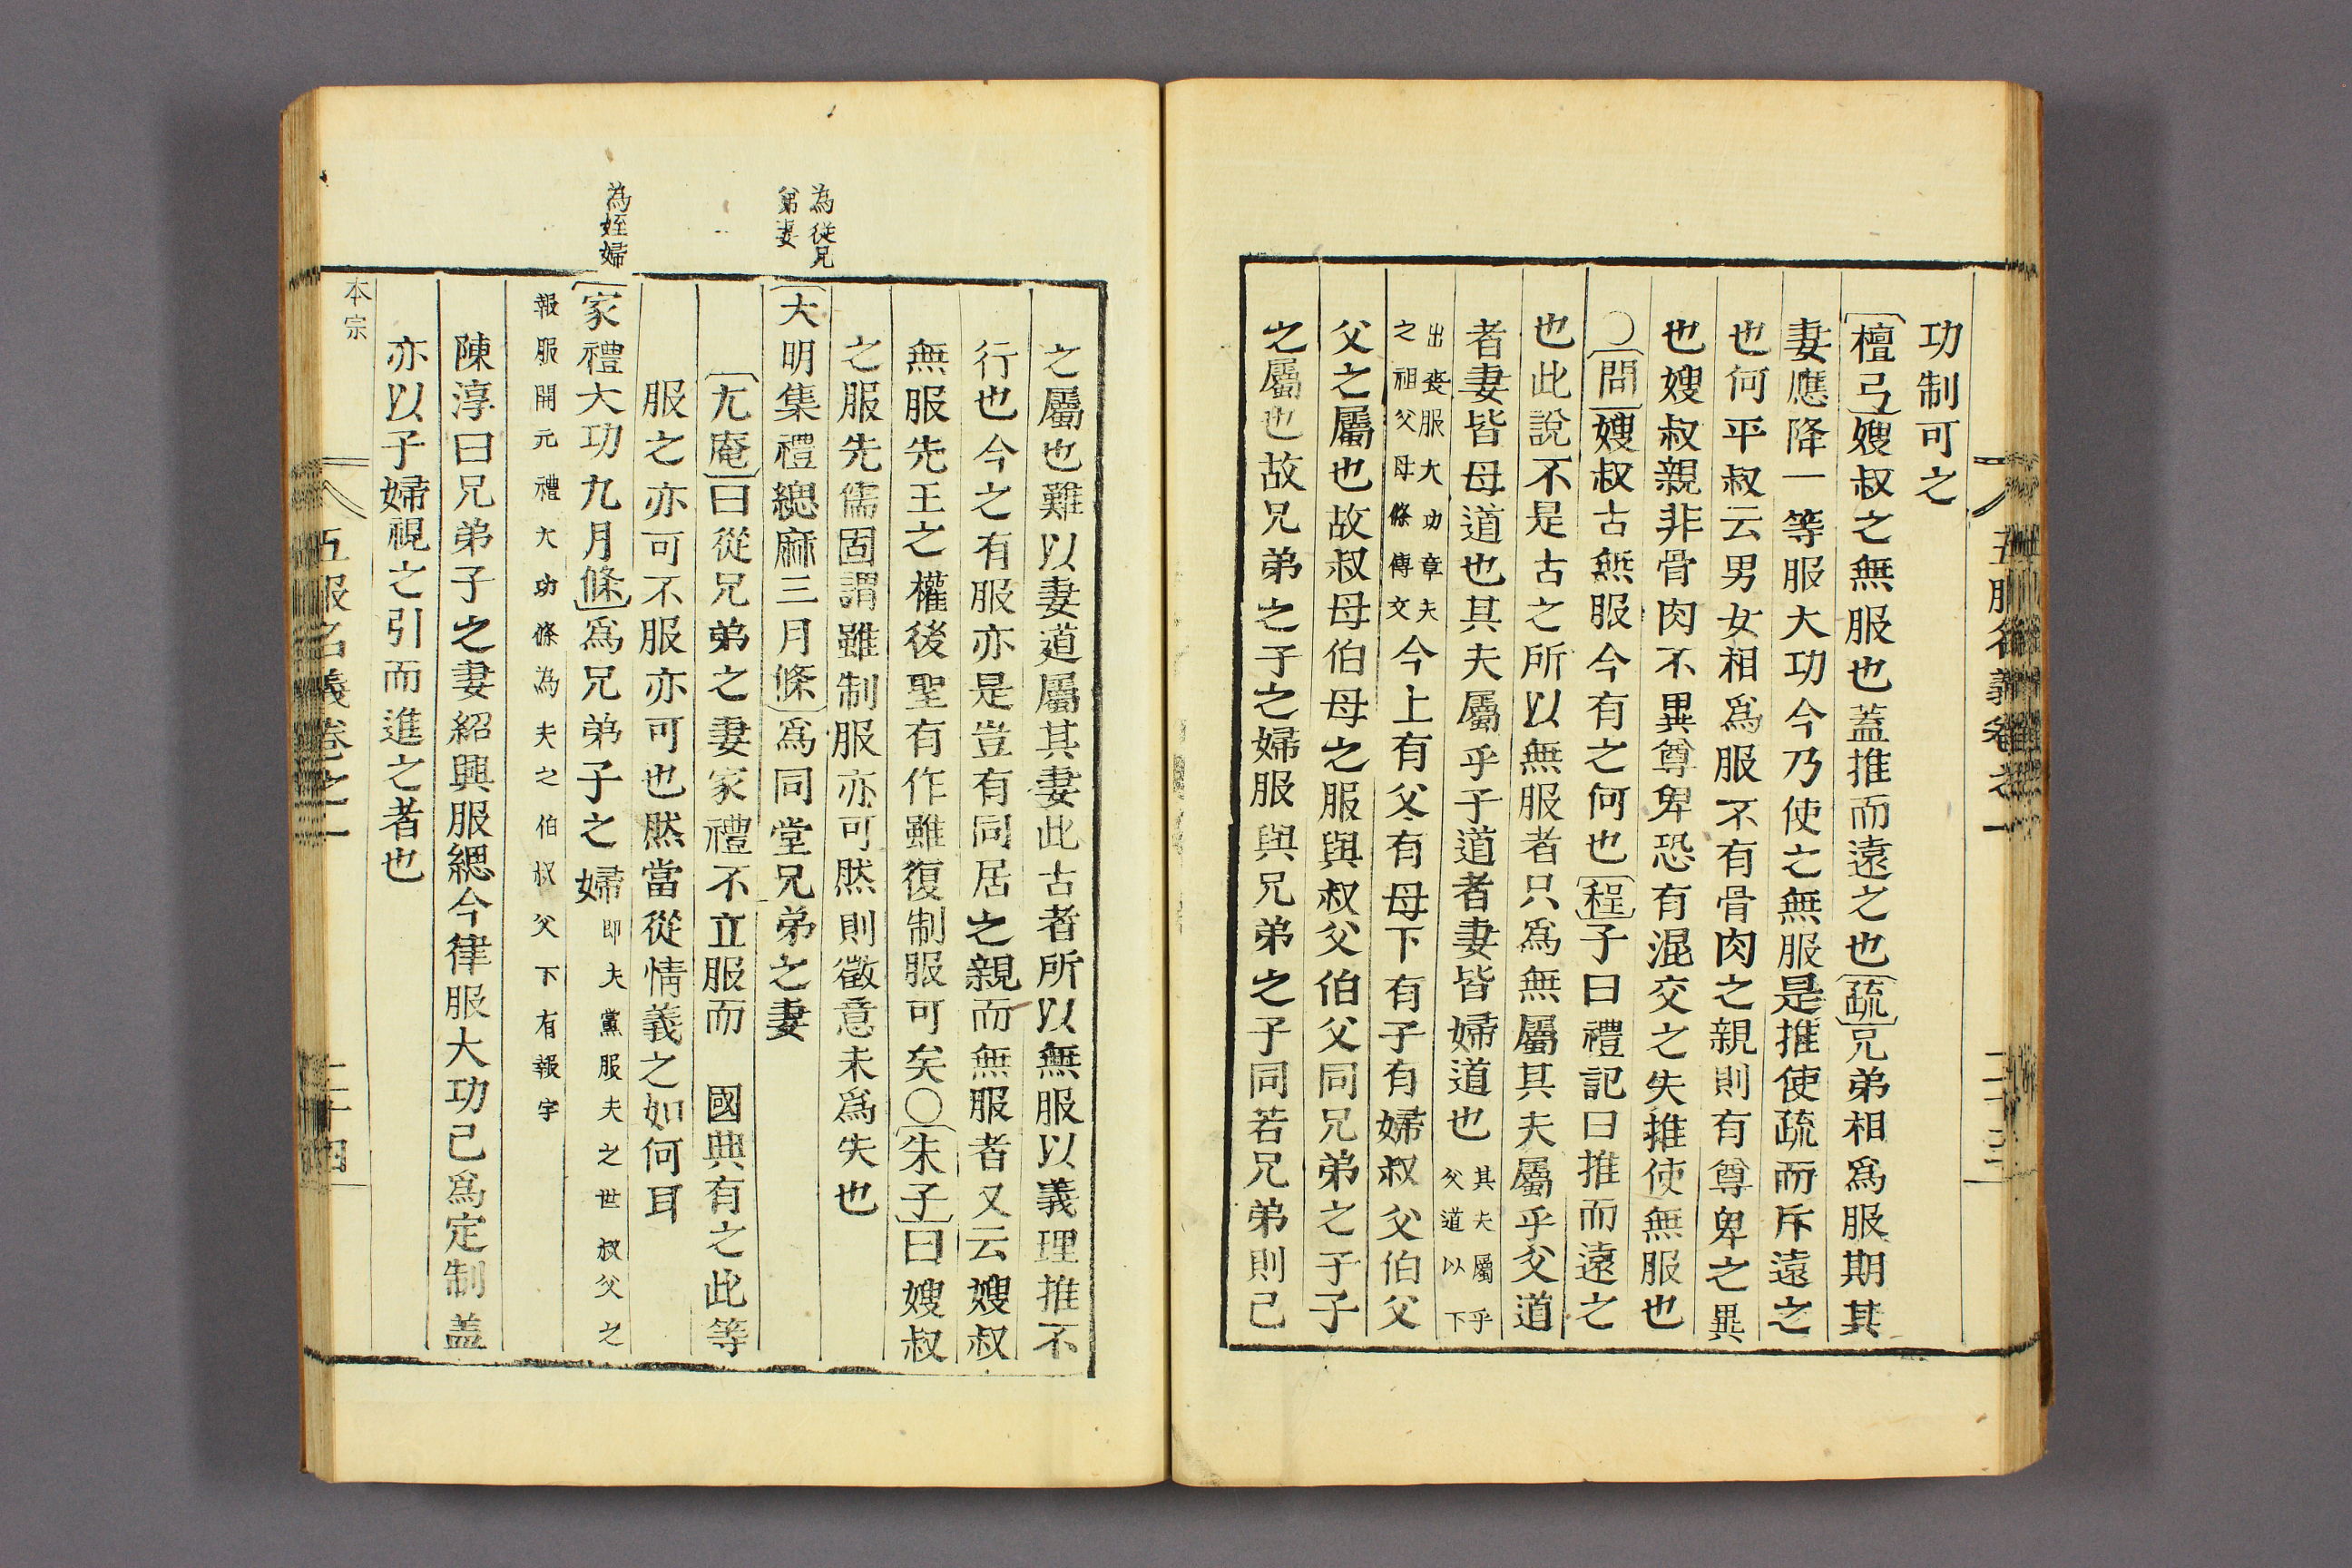 功制可之
檀弓嫂叔之無服也蓋推而遠之也疏兄弟相爲服期其
妻應降一等服大功今乃使之無服是推使疏而斥遠之
也何平叔云男女相爲服不有骨肉之親則有尊卑之異
也嫂叔親非骨肉不異尊卑恐有混交之失推使無服也
○問嫂叔古無服今有之何也程子曰禮記曰推而遠之
也此說不是古之所以無服者只爲無屬其夫屬乎父道
者妻皆母道也其夫屬乎子道者妻皆婦道也其夫屬乎父道以下
出喪服大功章夫之祖父母條傳文今上有父有母下有子有婦叔父伯父
父之屬也故叔母伯母之服與叔父伯父同兄弟之子子
之屬也故兄弟之子之婦服與兄弟之子同若兄弟則己
五服名義卷之一
之屬也難以妻道屬其妻此古者所以無服以義理推不
行也今之有服亦是豈有同居之親而無服者又云嫂叔
無服先王之權後聖有作雖復制服可矣○朱子曰嫂叔
之服先儒固謂雖制服亦可然則徵意未爲失也
為從兄
弟妻
大明集禮緦麻三月條爲同堂兄弟之妻
尤庵曰從兄弟之妻家禮不立服而 國典有之此等
服之亦可不服亦可也然當從情義之如何耳
為姪婦
家禮大功九月條爲兄弟子之婦即夫黨服夫之世叔父之
報服開元禮大功條為夫之伯叔父下有報字
陳淳曰兄弟子之妻紹興服緦今律服大功已爲定制蓋
亦以子婦視之引而進之者也
本宗
五服名義卷之一
二十四